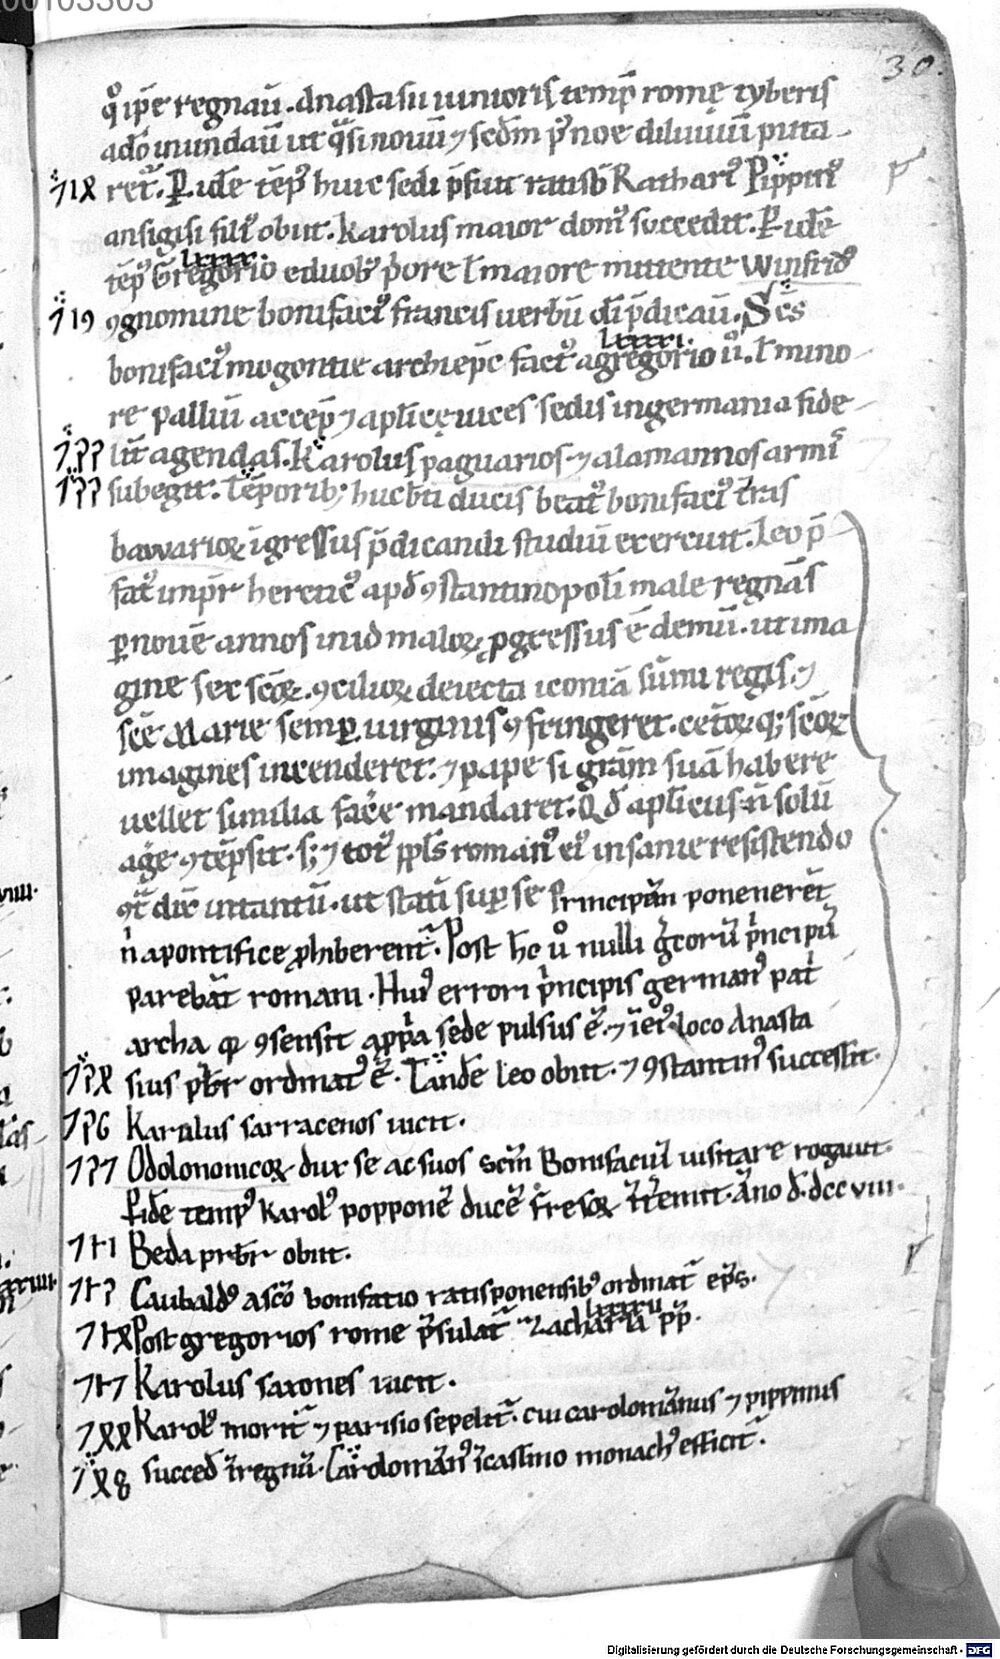 30.
qͦ ip̄e regnaū. Anastasii iunioris temp̄ romę tyberis
adeo inundaū ut q̄si nouū ⁊ scd̄m p̄ noe diluuiū puta
ret̄. P̱ idē tēp̄ huic sedi p̄fuit ratisb̄ Ratharꝰ Pippinꝰ
ansigisi filiꝰ obiit. karolus maior domꝰ succedit. P̱ idē
tēp̄ Gregorio eduobꝰ p̄ore ł maiore mittente Winfridꝰ
719 ꝯgnomine bonifaciꝰ francis uerbū dī p̄dicaū. Scs̄
bonifaciꝰ mogontie archiep̄c factꝰ a gregorio ii. ł mino
re palliū accep̄ ⁊ aplicę uices sedis in germania fide
lit̄ agendas. Karolus paguarios ⁊ alamannos armī
subegit. Tēporibꝫ hucb̄ti ducis beatꝰ bonifaciꝰ t̄ras
bawarioꝝ īgressus p̄dicandi studiū exercuit. Leo p̄
fatꝰ imp̄r hereticꝰ apd̄ ꝯstantinopolī male regnās
ꝑ nouē annos in id maloꝝ ꝓgressus ē demū. ut ima
gine sex scōꝝ. ꝯcilioꝝ deiecta iconiā sūmi regis. ⁊
scē Marie semꝑ uirginis ꝯfringeret. cet̄oꝝ qꝫ scōꝝ
imagines incenderet. ⁊ pape si gr̄am suā habere
uellet similia facē mandaret. Qđ aplicus n̄ solū
agē ꝯtēpsit. sꝫ ⁊ totꝰ ppl̄s romanꝰ eiꝰ insanie resistendo
ꝯt̄dic̄ intantū. ut statī suꝑ se Principem ponenerēt
n̄ a pontifice ꝓhiberent̄. Post hͦ uͦ nulli gͬcorū pͥncipū
parebāt romani. Huiꝰ errori pͥncipis germanꝰ pat̄
archa qͥ ꝯsensit a ꝓpͥa sede pulsus ē. ⁊ in eiꝰ loco Anasta
sius pb̄r ordinatꝰ ē. Tandē leo obiit. ⁊ ꝯstantinꝰ successit.
736 Karolus sarracenos uicit.
737 Odolonomcoꝝ dux se ac suos scm̄ Bonifaciū uisitare rogauit.
P̱ idē tempꝰ karolꝰ popponē ducē fresoꝝ īt̄emit. Anno d. dccviii.
741 Beda prb̄r obiit.
Gaubaldꝰ a scō bonifatio ratisponensibꝰ ordinat̄ ep̄s.
Post gregorios rome p̄sulat̄ Zacharia pp̄.
747 Karolus saxones uicit.
Karolꝰ morit̄ ⁊ parisio sepelit̄. cui carolomānus ⁊ pippinus
succed̄ ī regnū. Carolomānꝰ ī cassino monachꝰ efficit̄.
Digitalisierung gefördert durch die Deutsche Forschungsgemeinschaft - DFG